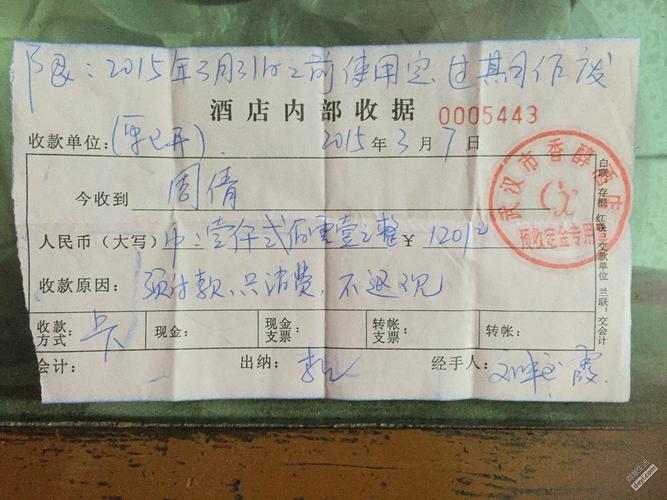 限：2015年3月31日之前使用完 过期作废
酒店内部收据 0005443
收款单位：(票已开) 2015年3月7日
今收到 周倩
人民币（大写）币：壹仟贰佰零壹元整 ￥1201元
收款原因：预付款、只消费，不退现
收款方式：卡 现金： 现金支票： 转帐支票： 转帐：
会计： 出纳： 经手人： 霞
武汉市香醉酒店
CX
预收定金专用
白联：存根 红联：交款单位 兰联：交会计